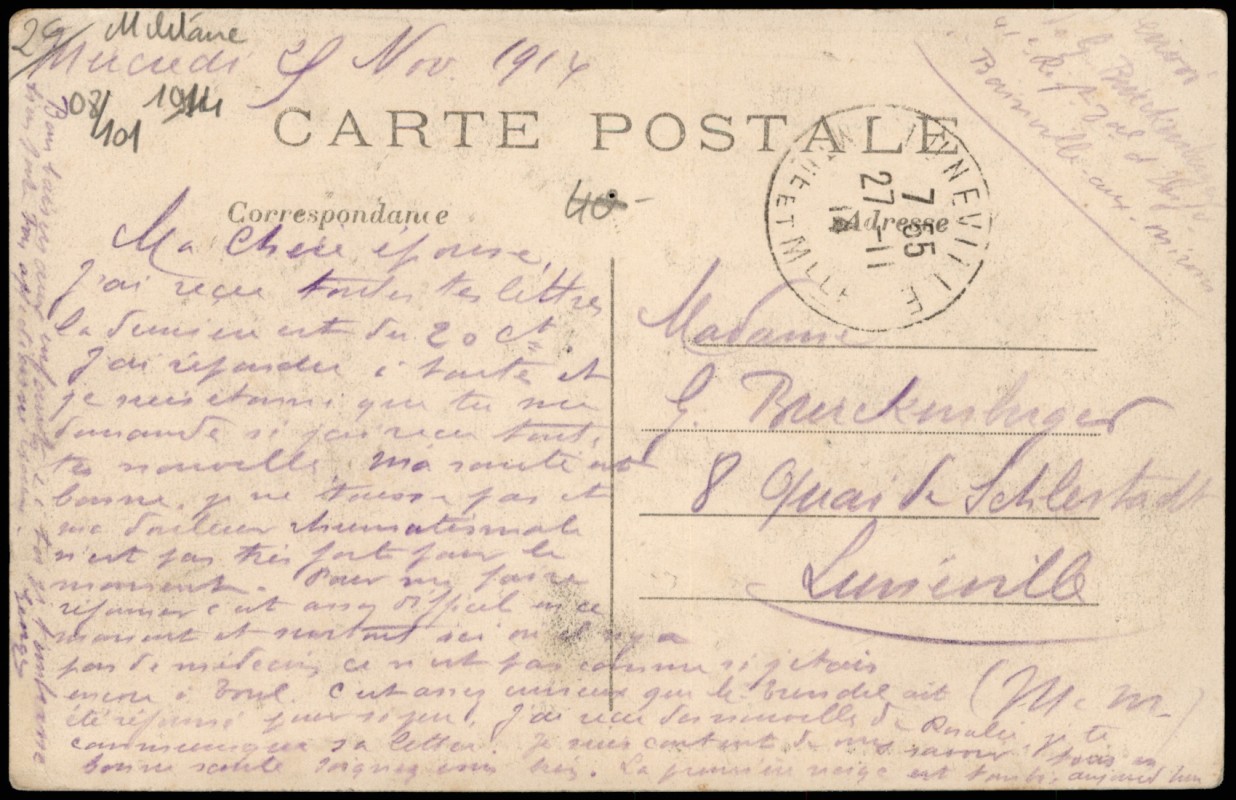 29 Militaire
Mercredi 25 Nov. 1914
08/101 1914
CARTE POSTALE
40-
Correspondance
Adresse
LUNEVILLE
7 55
27-11
14
MLLE
G. Bruckenburger
Bainville-aux-miroirs
Ma chère épouse,
J'ai reçu toutes tes lettres
la dernière est du 20 ct
J'ai répondu à toutes et
je suis étonné que tu me
demande si j'ai reçu toute
tes nouvelle. Ma santé est
bonne, je ne tousse pas et
ma douleur rhumatismale
n'est pas très fort pour le
moment. Pour me faire
réformer c'est assez difficil en ce
moment et surtout ici où il n'y a
pas de médecin, ce n'est pas comme si j'étais
encore à Toul. C'est assez curieux que le Trendel ait
été réformé pour si peu. J'ai reçu des nouvelles de Rosalie je te
communique sa lettre. Je suis content de vous savoir tous en
bonne santé soignez vous bien. La première neige est tombée aujourd'hui
Bons baisers aux enfants et à toi je t'embrasse
Georges
Madame
G. Bruckenburger
8 Quai de Schlestadt
Lunéville
(M. et M.)